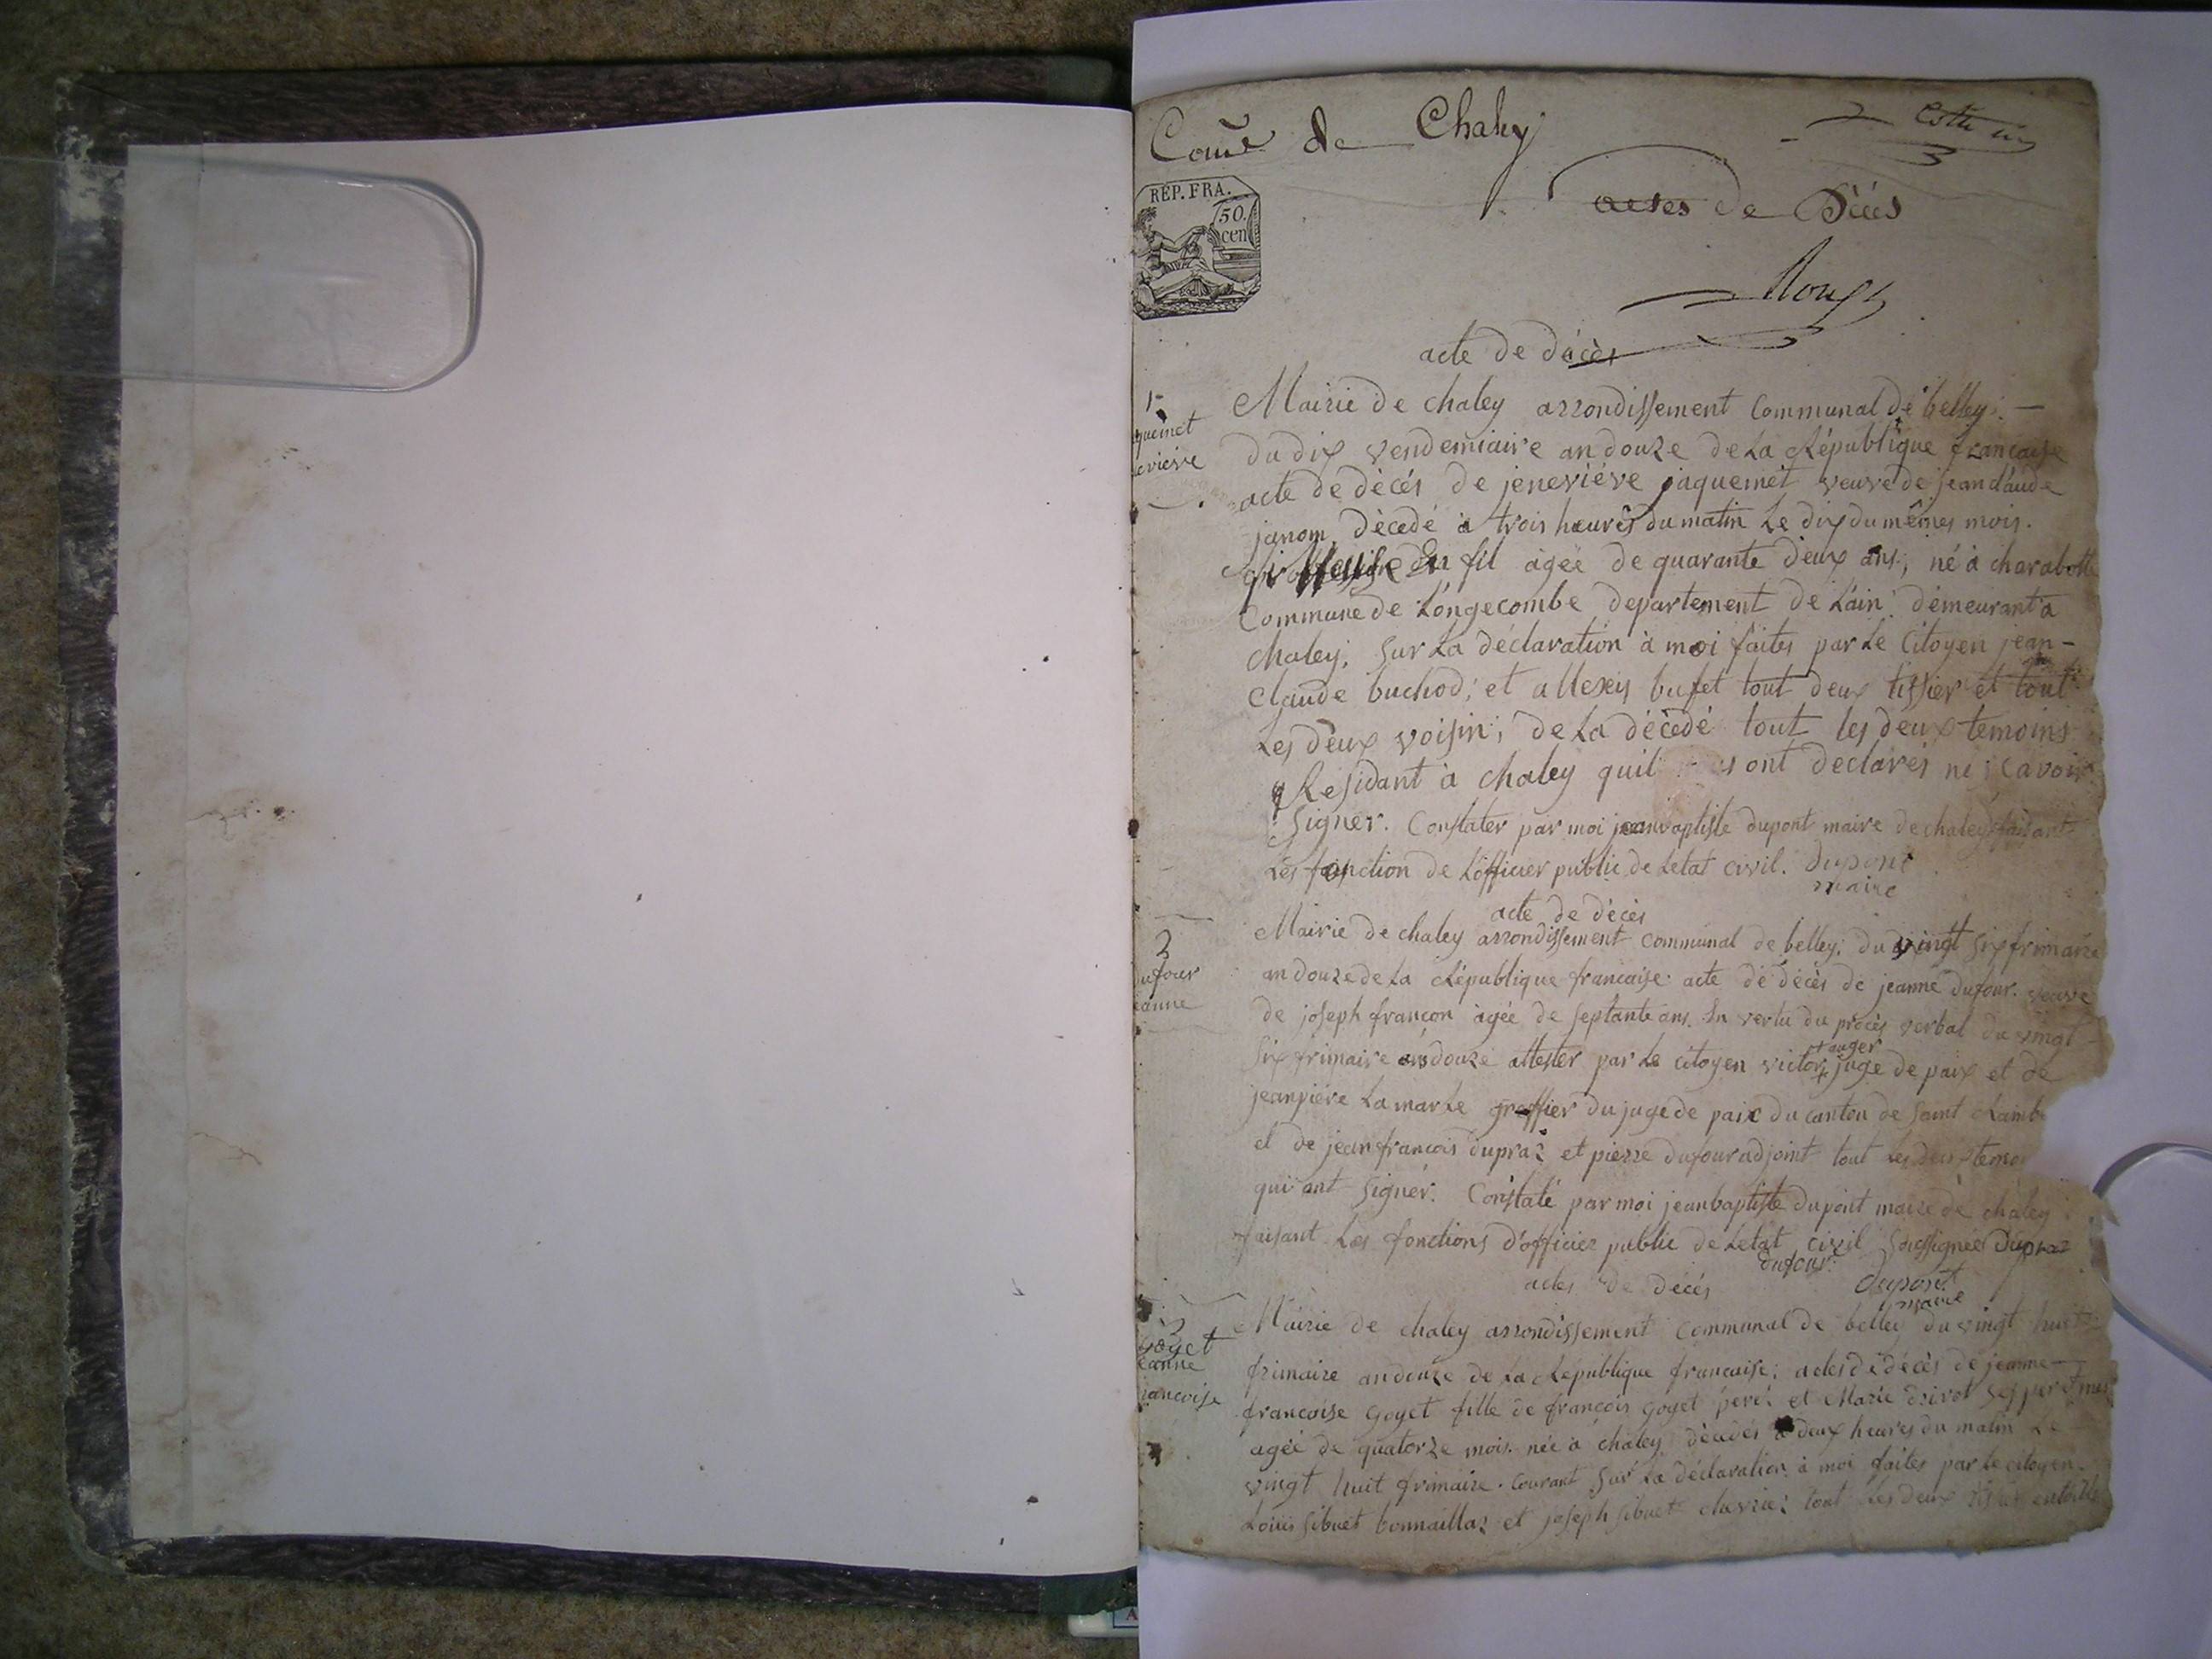 Come de Chaley
REP. FRA.
50.
cen
actes de Décès
acte de décès
1
quemet
eviève
Mairie de chaley arrondissement Communal de belley. —
du dix vendemiaire an douze de La République francaise
acte de décés de jeneviéve jaquemet veuve de jean claude
janom, décedé à trois heures du matin Le dix du mêmes mois.
fil agée de quarante deux ans, né à charabotte
Commune de Longecombe departement de Lain. demeurant a
chaley, Sur La déclaration à moi faites par Le Citoyen jean-
Claude buchod, et allexis bufet tout deux tissier et tout
Les deux voisin, de La décedé tout les deux temoins
Residant à chaley quil ont declarés ne sçavoir
Signer. Constater par moi jeanbaptiste dupont maire de chaley faisant
Les fonction de Lofficier public de Letat civil. dupont
maire
acte de décès
2
ufour
eanne
Mairie de chaley arrondissement communal de belley. du vingt six frimaire
an douze de La République francaise acte de décès de jeanne dufour. veuve
de joseph françon agée de septante ans. En vertu du procès verbal du vingt
six frimaire an douze attester par Le citoyen victor + juge de paix et de
+ auger
jeanpiére Lamarke greffier du juge de paix du canton de Saint Ramb
et de jean francois dupraz et pierre dufour adjoint tout Les deux temo
qui ont signér. Constaté par moi jeanbaptiste dupont maire de chaley
faisant Les fonctions d'officier public de Letat civil Soussignée Dupraz
dufour.
dupont
maire
actes de décés
3
Goyet
eanne
rancoise
Mairie de chaley arrondissement communal de belley du vingt huit
frimaire an douze de La République francaise; actes de décès de jeanne
francoise Goyet fille de françois Goyet péré et Marie drivot ses per et mer
agée de quatorze mois. née à chaley décedés à deux heures du matin Le
vingt huit frimaire. Courant Sur La déclaration à moi faites par Le citoyen.
Louis Sibuet bonnaillaz et joseph Sibuet clavrier tout Les deux